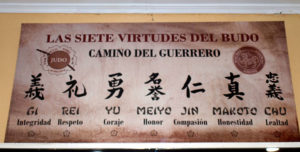 LAS SIETE VIRTUDES DEL BUDO
CAMINO DEL GUERRERO
JUDO
義 礼 勇 名誉 仁 真 忠義
GI REI YU MEIYO JIN MAKOTO CHU
Integridad Respeto Coraje Honor Compasión Honestidad Lealtad